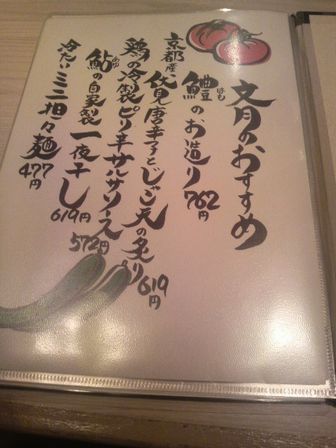 文月のおすすめ
鱧のお造り762円
はも
京都産伏見唐辛子とじゃこ天の炙り619円
鶏の冷製ピリ辛サルサソース572円
鮎の自家製一夜干し619円
あゆ
冷たいミニ担々麺477円